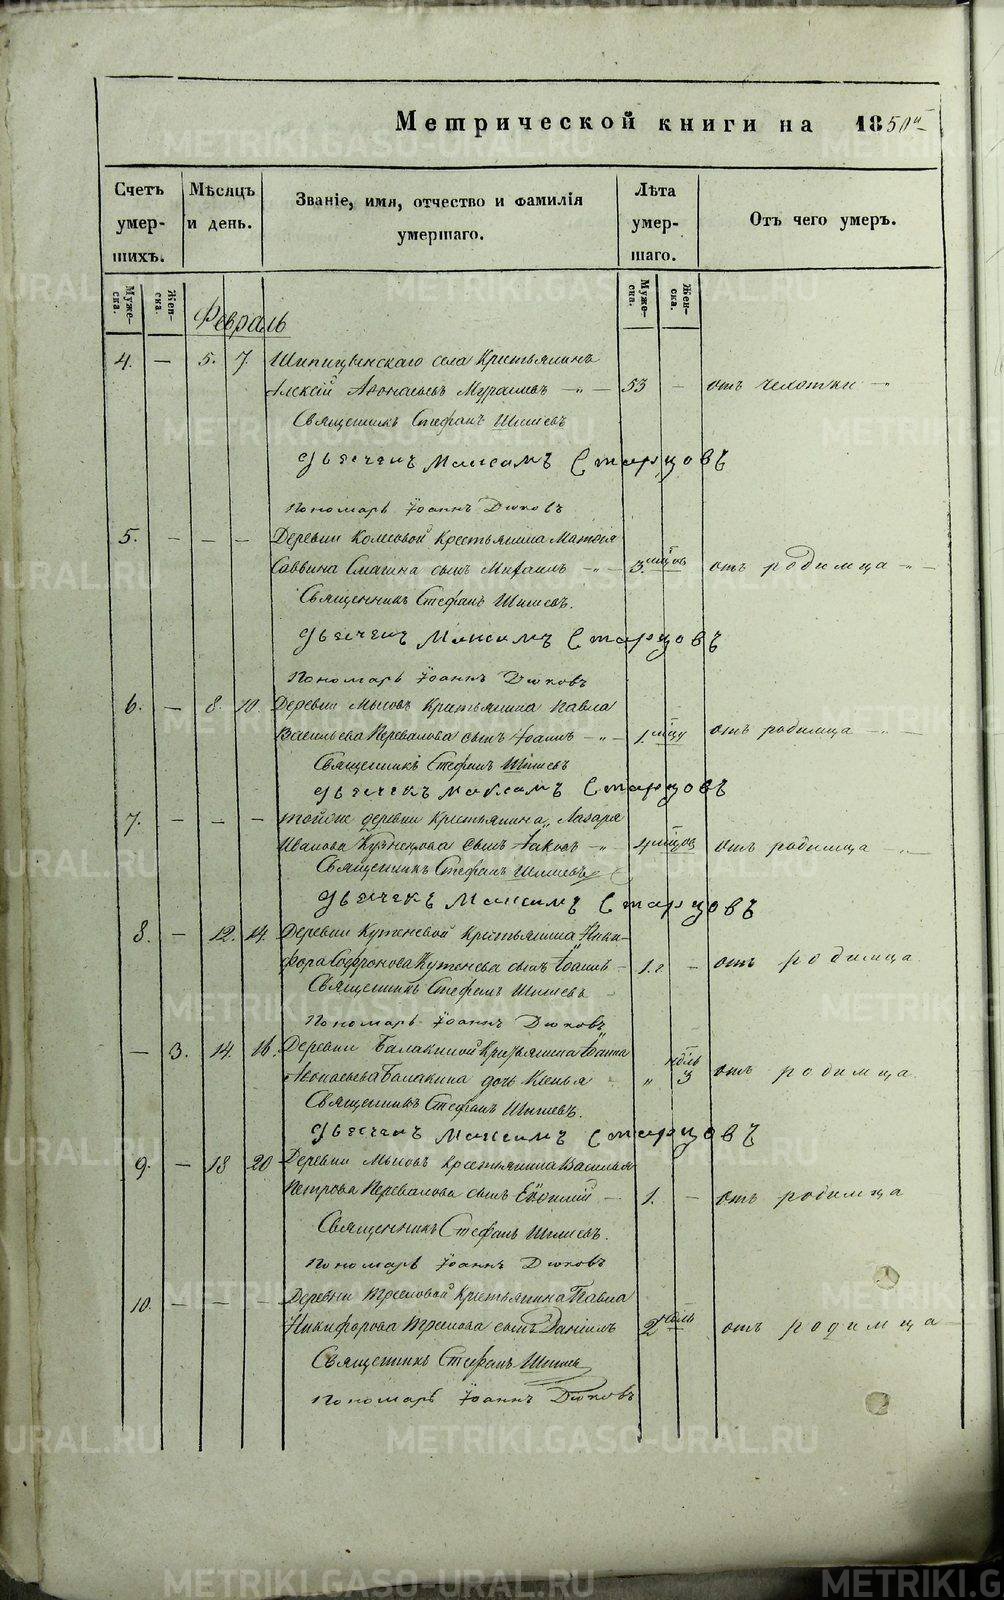 Метрической книги на 1850й
Счетъ умер- шихъ.
Мѣсяцъ и день.
Званіе, имя, отчество и фамилія умершаго.
Лѣта умер- шаго.
Отъ чего умеръ.
Муже- ска.
Жен- ска.
Муже- ска.
Жен- ска.
Февраль
4. — 5. 7. Шипицынскаго села Крестьянинъ
Алексій Аѳонасьевъ 53 — отъ чахотки
Священникъ Стефанъ
Дьячекъ Максимъ Старцовъ
Пономарь Іоаннъ Дюковъ
5. — — — Деревни Крестьянина Матѳея
Саввина Смагина сынъ Михаилъ 3. мцов отъ родимца
Священникъ Стефанъ
Дьячекъ Максимъ Старцовъ
Пономарь Іоаннъ Дюковъ
6. — 8. 10. Деревни Мысовъ Крестьянина Павла
Васильева Перевалова сынъ Іоаннъ 1. мцу отъ родимца
Священникъ Стефанъ
Дьячекъ Максимъ Старцовъ
7. — — — тойже деревни Крестьянина Лазаря
Иванова Кузнецова сынъ Іаковъ 4 мцов отъ родимца
Священникъ Стефанъ
Дьячекъ Максимъ Старцовъ
8. — 12. 14. Деревни Кутеневой Крестьянина Ники-
фора Софронова Кутенева сынъ Іоаннъ 1. г — отъ родимца
Священникъ Стефанъ
Пономарь Іоаннъ Дюковъ
— 3. 14. 16. Деревни Балакиной Крестьянина
Аѳонасьева Балакина дочь Ксенья " 3 ндль отъ родимца
Священникъ Стефанъ
Дьячекъ Максимъ Старцовъ
9. — 18 20 Деревни Мысовъ Крестьянина Василья
Петрова Перевалова сынъ Евѳимій 1. — отъ родимца
Священникъ Стефанъ
Пономарь Іоаннъ Дюковъ
10. — — — Деревни Крестьянина Павла
Никифорова сынъ Даніилъ 2 ндль отъ родимца
Священникъ Стефанъ
Пономарь Іоаннъ Дюковъ
METRIKI.GASO-URAL.RU